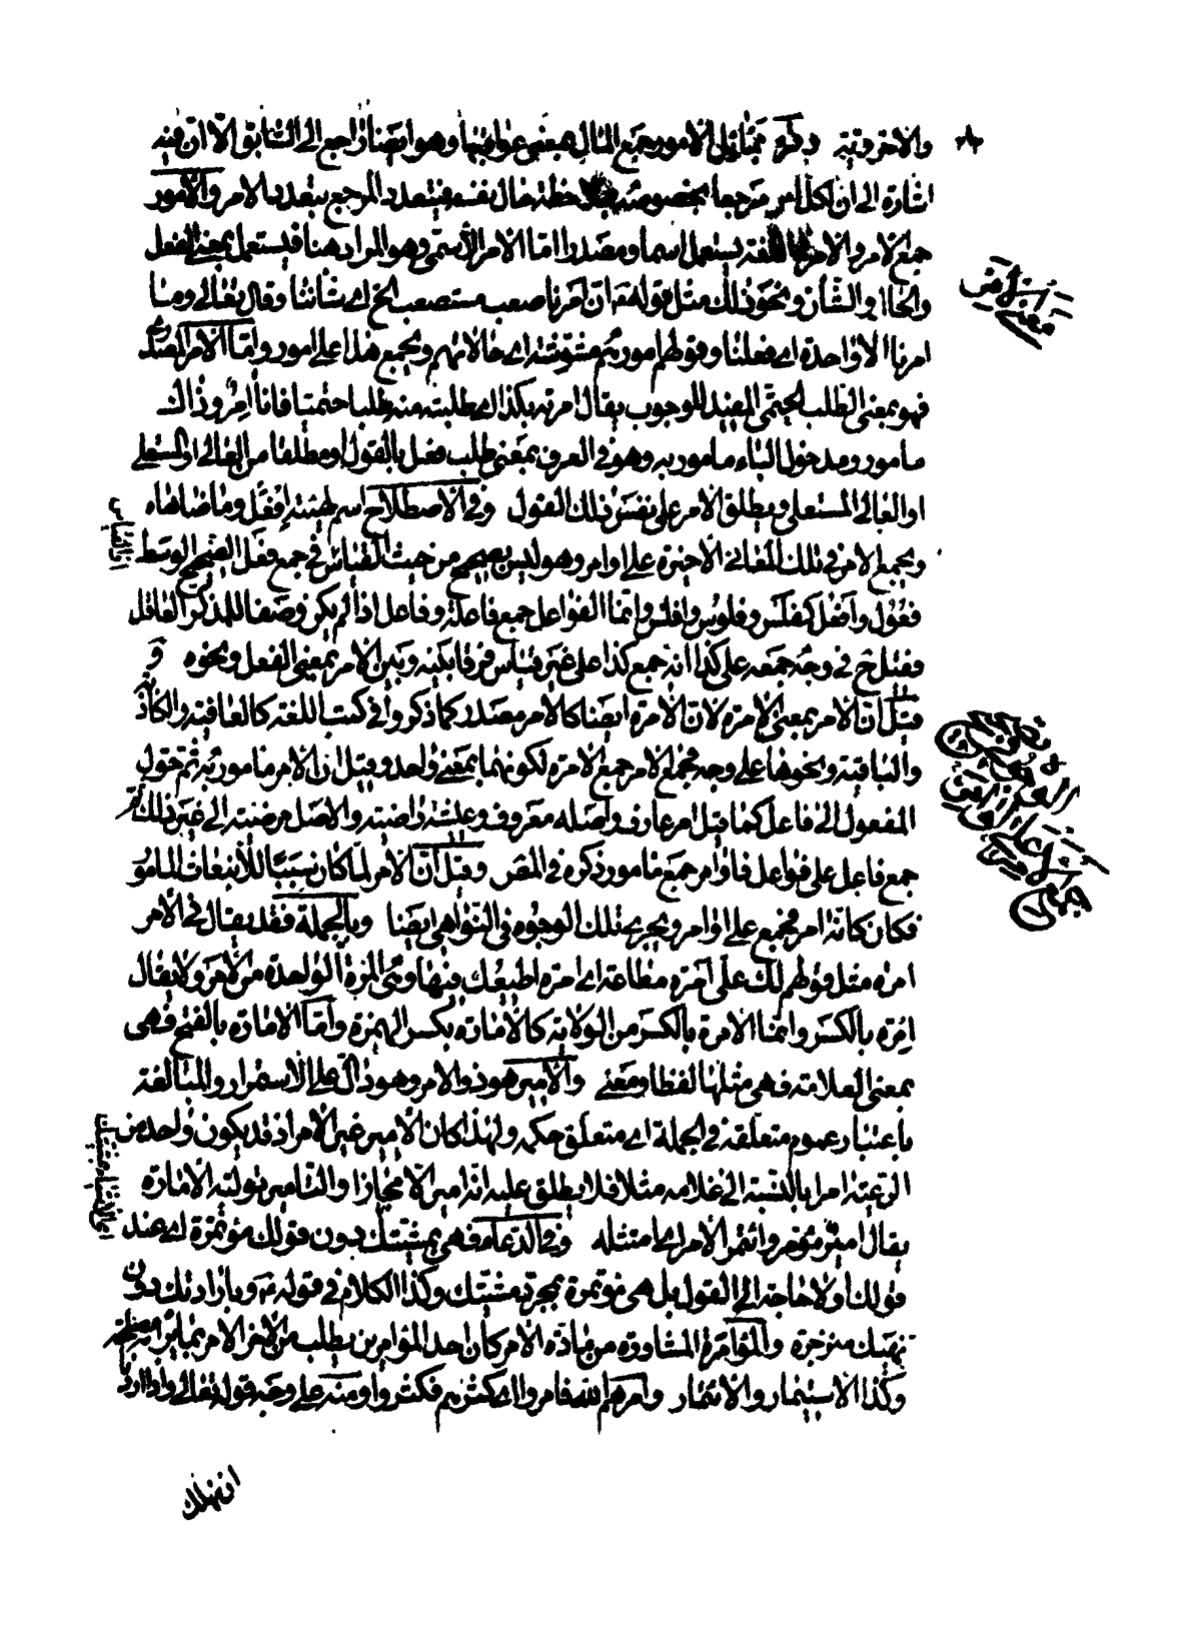 والاخروية ذكره بمآثل الامور جمع المآل بمعنى عواقبها وهو ايضا راجع الى السّابق الّا انّ فيه
اشارة الى ان لكل امر مرجعا بخصوصه خال نفسه فيتعدد المرجع بتعدد الامر والامور
جمع الامر والامر في اللغة يستعمل اسما ومصدرا امّا الامر الأسمّى وهو المراد هنا فيستعمل بمعنى الفعل
والحال والشّأن ونحو ذلك مثل قوله ان امرنا صعب مستصعب الخ اى شأننا وقال تعالى وما
امرنا الا واحدة اى فعلنا وقولهم امور بهم مشوّشة اى حالاتهم ويجمع هذا على امور وامّا الامر المصدرى
فهو بمعنى الطلب الحتمّى المفيد للوجوب يقال امرته بكذا اى طلبته منه طلبا حتميّا فانا آمر وذاك
مامور ومدخول الباء مامور به وهو فى العرف بمعنى طلب فعل بالقول او مطلقا من العالى او المستعلى
او العالى المستعلى ويطلق الامر على نفس ذلك القول وفى الاصطلاح اسم لهيئة إفعل وما ضاهاه
ويجمع الامر فى تلك المعانى الاخيرة على اوامر وهو ليس بصحيح من حيث القياس فى جمع فعل الصحيح الوسط
فعول وافعل كفلس وفلوس وافلس وانّما الفواعل جمع فاعلة وفاعل اذا لم يكن وصفا للمذكّر العاقل
فقيل فى وجه جمعه على كذا انه جمع كذا على غير قياس فرقا بينه وبين الامر بمعنى الفعل ونحوه و
قيل ان الامر بمعنى الامرة لان الامرة ايضا كالامر مصدر كما ذكروا فى كتب اللغة كالعافية والكاذبة
والباقية ونحوها على وجه فجمع الامر جمع الامرة لكونهما بمعنى واحد وقيل ان الامر مامور به ثم حول
المفعول الى فاعل كما قيل امر عارف واصله معروف وعيشة راضية والاصل مرضية الى غير ذلك ثم
جمع فاعل على فواعل فاوامر جمع مامور ذكره فى المصر وقيل انّ الامر لما كان سببا للأنبعاث المأمور
فكان كانّه امر فجمع على اوامر ويجرى تلك الوجوه فى النواهى ايضا وبالجملة فقد يقال فى الأمر
امرة مثل قولهم لك علىّ امرة مطاعة اى امرة اطيعك فيها وهى المرة الواحدة من الأمر ولا يقال
إمرة بالكسر وانّما الامرة بالكسر من الولاية كالأمارة بكسر الهمزة وامّا الامارة بالفتح فهى
بمعنى العلامة فهى مثلها لفظا ومعنى والأمير هو ذو الامر وهو دالّ على الاستمرار والمبالغة
باعتبار عموم متعلقه فى الجملة اى متعلق حكمه ولهذا كان الأمير غير الآمر اذ قد يكون واحد من
الرعيّة آمرا بالنسبة الى غلامه مثلا فلا يطلق عليه انه امير الّا مجازا والتأمير تولية الامارة
يقال امير مؤمّر وائتمر الأمر اى امتثله وفى الدعاء فهى بمشيّتك دون قولك مؤتمرة اى عند
قولك ولا حاجة الى القول بل هى مؤتمرة بمجرّد مشيّتك وكذا الكلام فى قوله وبارادتك دون
نهيك منزجرة والمؤامرة المشاورة من مادّة الامر كأن احد المؤامرين يطلب من الآخر الامر بما يرى
وكذا الاستيمار والائتمار وامرهم الله فامروا اى كثّرهم فكثروا ومنه على وجه قوله تعالى واذا اردنا
ان نهلك